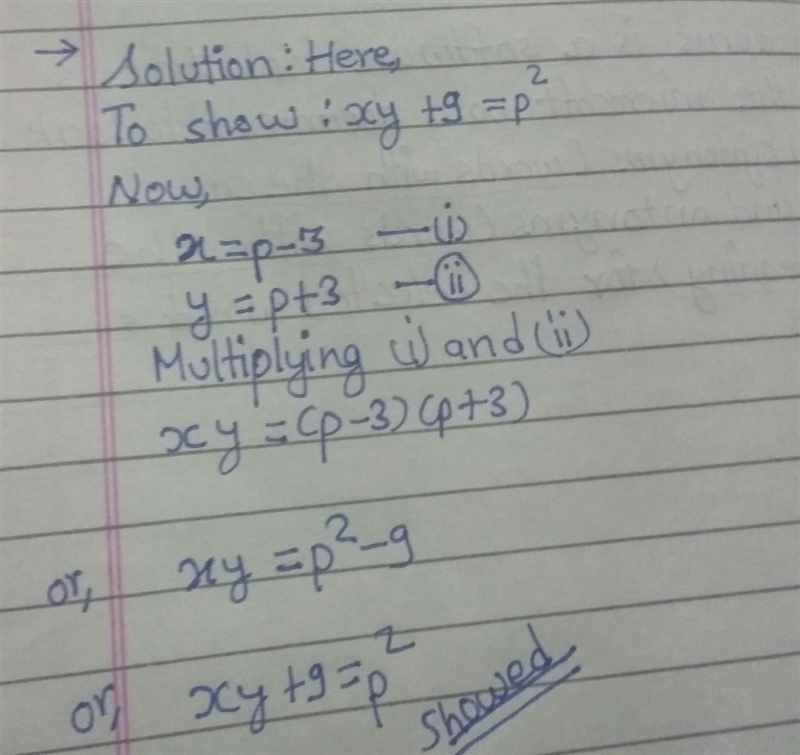 → Solution: Here,
To show: xy + 9 = p²
Now,
x = p - 3 —(i)
y = p + 3 —(ii)
Multiplying (i) and (ii)
xy = (p - 3) (p + 3)
or, xy = p² - 9
or, xy + 9 = p²
showed